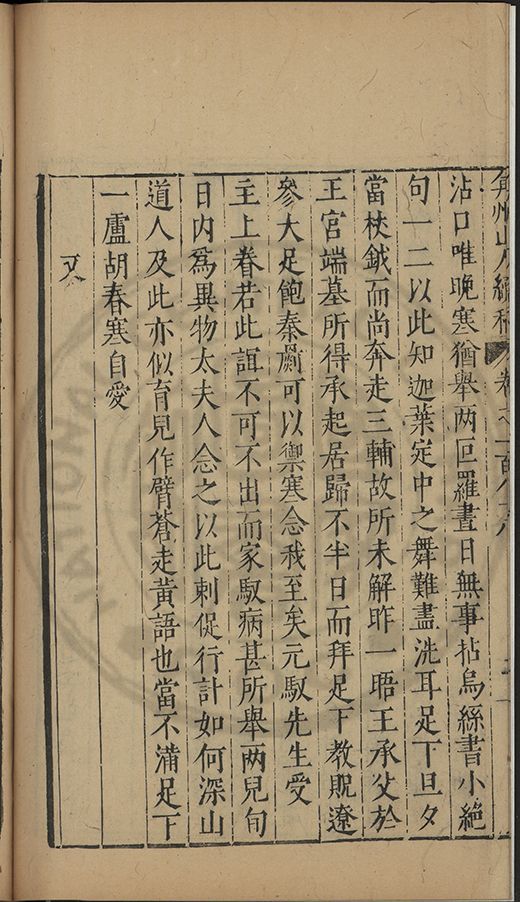 弇州山人續稿 卷之一百八十八
沾口唯晚寒猶舉兩叵羅晝日無事拈烏絲書小絕
句一二以此知迦葉定中之舞難盡洗耳足下旦夕
當杖鉞而尚奔走三輔故所未解昨一晤王承父於
王宮端墓所得承起居歸不半日而拜足下教貺遼
參大足飽秦罽可以禦寒念我至矣元馭先生受
主上眷若此誼不可不出而家馭病甚所舉兩兒旬
日內為異物太夫人念之以此刺促行計如何深山
道人及此亦似育兒作臂蒼走黃語也當不滿足下
一盧胡春寒自愛
又